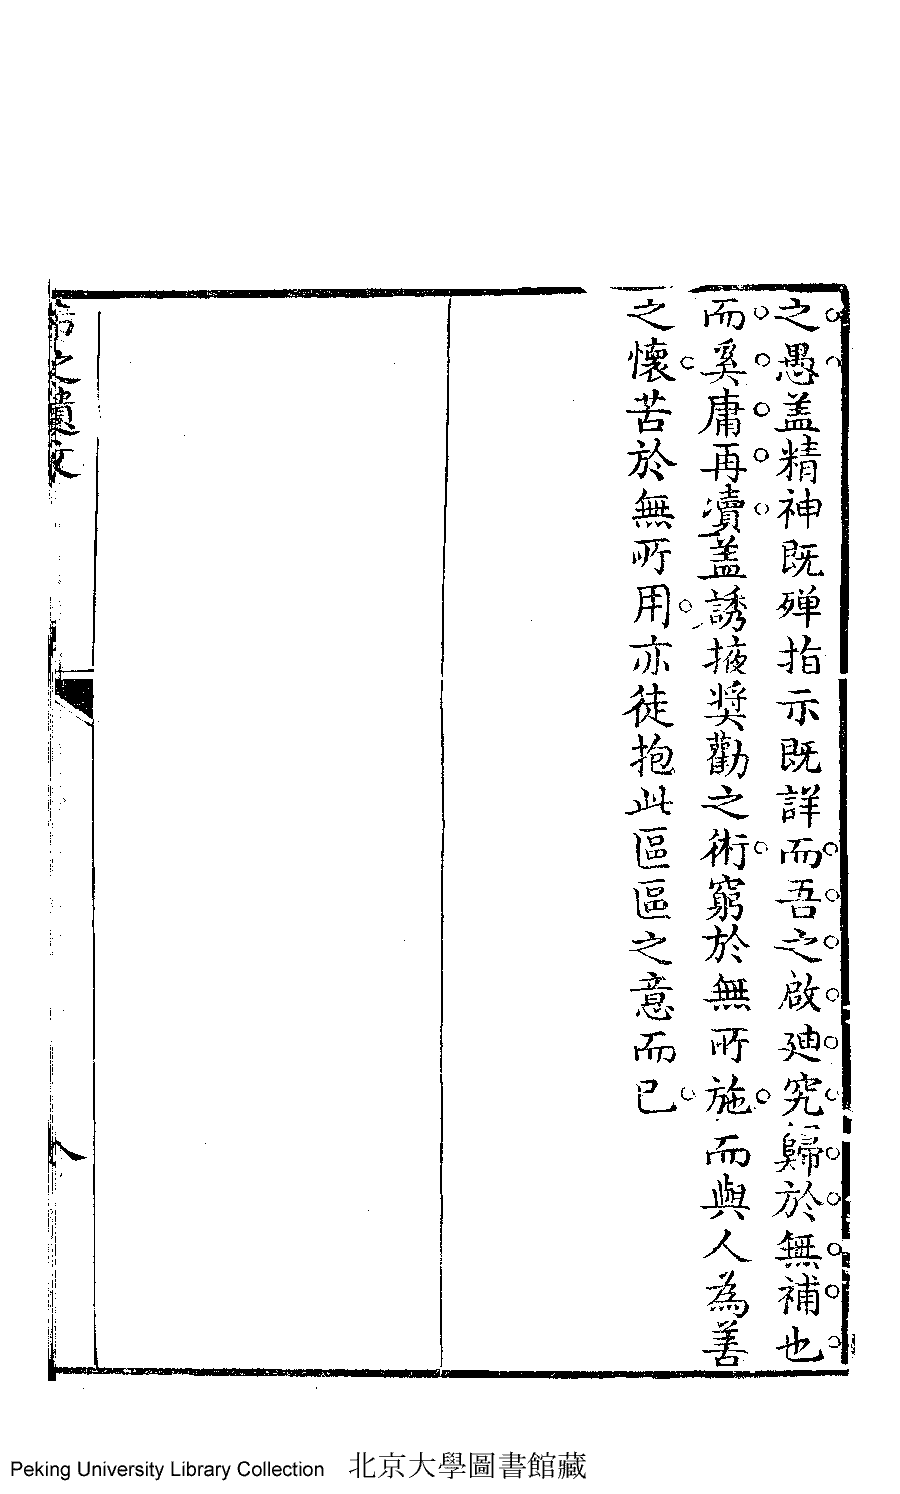 之愚盖精神既殫指示既詳而吾之啟廸究歸於無補也
而奚庸再瀆盖誘掖奬勸之術窮於無所施而與人為善
之懷苦於無所用亦徒抱此區區之意而已
之遺文
八
Peking University Library Collection 北京大學圖書館藏